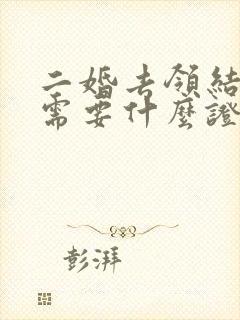 二婚去領結
需要什麼證
彭湃